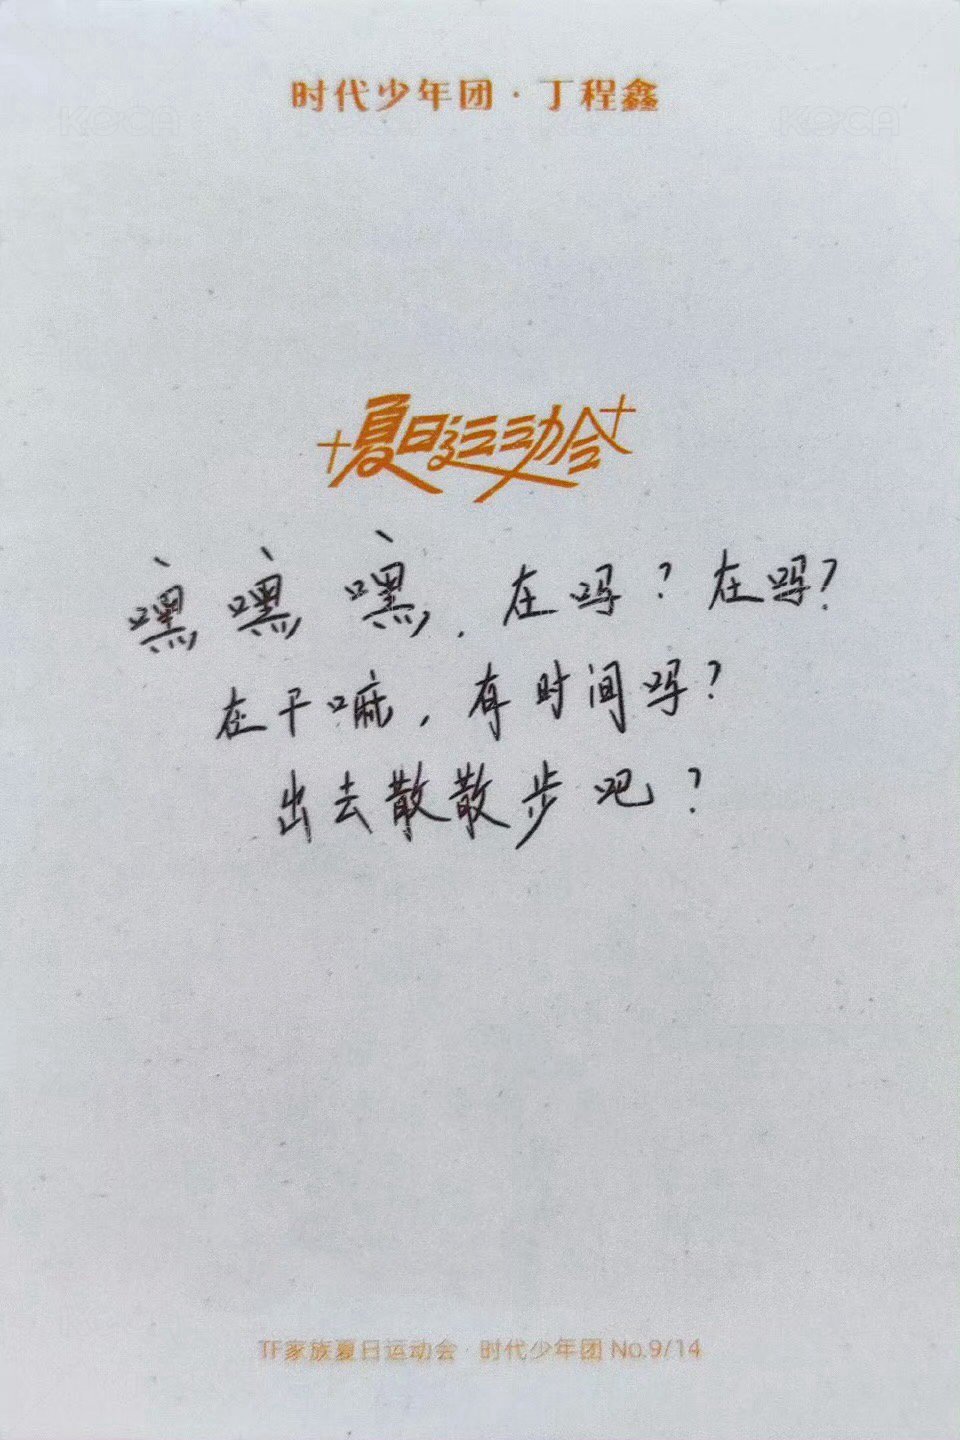 时代少年团·丁程鑫
KOCA
KOCA
夏日运动会
嘿嘿嘿，在吗？在吗？
在干嘛，有时间吗？
出去散散步吧？
TF家族夏日运动会·时代少年团 No.9/14